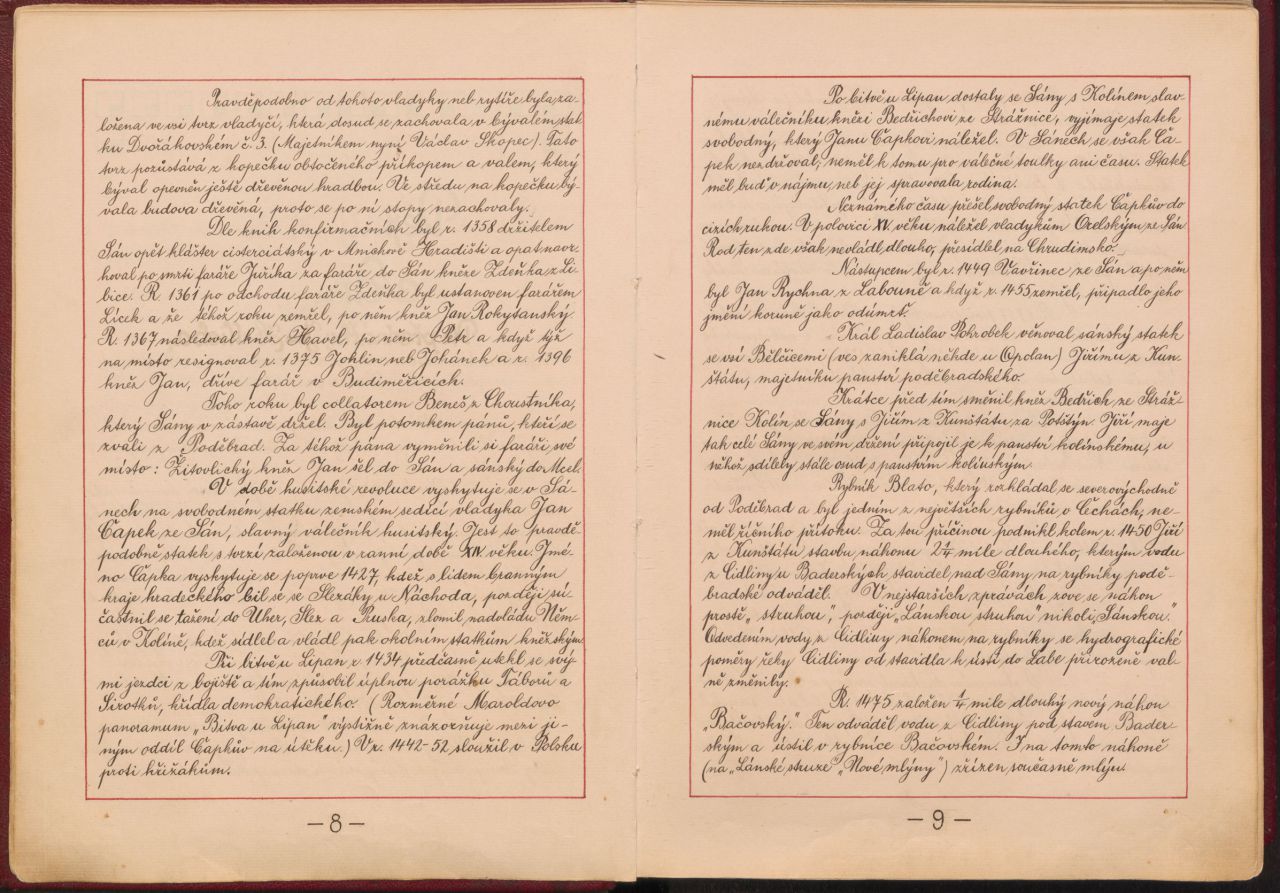 Pravděpodobno od tohoto vladyky neb rytíře byla za-
ložena ve vsi tvrz vladyčí, která dosud se zachovala v bývalém stat
ku Dvořákovském č. 3. (Majetníkem nyní Václav Skopec). Tato
tvrz pozůstává z kopečku obtočeného příkopem a valem, který
býval opevněn ještě dřevěnou hradbou. Ve středu na kopečku bý-
vala budova dřevěná, proto se po ní stopy nezachovaly.
Dle knih konfirmačních byl r. 1358 držitelem
Sán opět klášter cisterciátský v Mnichově Hradišti a opat navr-
hoval po smrti faráře Jiříka za faráře do Sán kněze Zdeňka z Li-
bice. R. 1361 po odchodu faráře Zdeňka byl ustanoven farářem
Lícek a že téhož roku zemřel, po něm kněz Jan Rokytanský
R. 1367 následoval kněz Havel, po něm Petr a když týž
na místo resignoval r. 1375 Johlin neb Johánek a r. 1396
kněz Jan, dříve farář v Budiměřicích.
Toho roku byl collatorem Beneš z Choustníka,
který Sány v zástavě držel. Byl potomkem pánů, kteří se
zvali z Poděbrad. Za téhož pána vyměnili si faráři své
místo: Žitovlický kněz Jan šel do Sán a sánský do Mcel.
V době husitské revoluce vyskytuje se v Sá-
nech na svobodném statku zemském sedící vladyka Jan
Čapek ze Sán, slavný válečník husitský. Jest to pravdě-
podobně statek s tvrzí založenou v ranní době XIV věku. Jmé-
no Čapka vyskytuje se poprve 1427, kdež s lidem branným
kraje hradeckého bil se se Slezáky u Náchoda, později sú
častnil se tažení do Uher, Slez a Pruska, zlomil nadvládu Něm-
ců v Kolíně, kdež sídlel a vládl pak okolním statkům kněžským.
Při bitvě u Lipan r. 1434 předčasně utekl se svý-
mi jezdci z bojiště a tím způsobil úplnou porážku Táborů a
Sirotků, křídla demokratického. (Rozměrné Maroldovo
panoramum „Bitva u Lipan" výstižně znázorňuje mezi ji-
ným oddíl Čapkův na útěku.) V r. 1442-52 sloužil v Polsku
proti křižákům.
-8-
Po bitvě u Lipan dostaly se Sány s Kolínem slav-
nému válečníku knězi Bedřichovi ze Strážnice, vyjímaje statek
svobodný, který Janu Čapkovi náležel. V Sánech se však Čá-
pek nezdržoval, neměl k tomu pro válečné toulky ani času. Statek
měl buď v nájmu, neb jej spravovala rodina.
Neznámého času přešel svobodný statek Čapkův do
cizích rukou. V polovici XV věku náležel vladykům Orelským ze Sán
Rod ten zde však nevládl dlouho, přesídlel na Chrudimsko.
Nástupcem byl r. 1449 Vavřinec ze Sán a po něm
byl Jan Rychna z Labouně a když r. 1455 zemřel, připadlo jeho
jmění koruně jako odúmrť.
Král Ladislav Pohrobek věnoval sánský statek
se vsí Bělčicemi (ves zaniklá někde u Opolan) Jiřímu z Kun-
štátu, majetníku panství poděbradského.
Krátce před tím směnil kněz Bedřich ze Stráž-
nice Kolín se Sány s Jiřím z Kunštátu za Potštýn. Jiří maje
tak celé Sány ve svém držení připojil je k panství kolínskému, u
něhož sdílely stále osud s panstvím kolínským.
Rybník Blato, který rozkládal se severovýchodně
od Poděbrad a byl jedním z největších rybníků v Čechách, ne-
měl říčního přítoku. Za tou příčinou podnikl kolem r. 1450 Jiří
z Kunštátu stavbu náhonu 2¼ míle dlouhého, kterým vodu
z Cidliny u Baderských stavidel nad Sány na rybníky podě-
bradské odváděl. V nejstarších zprávách zove se náhon
prostě „struhou", později „Lánskou struhou" nikoli „Sánskou."
Odvedením vody z Cidliny náhonem na rybníky se hydrografické
poměry řeky Cidliny od stavidla k ústí do Labe přirozeně val-
ně změnily.
R. 1475 založen ¼ míle dlouhý nový náhon
„Bačovský." Ten odváděl vodu z Cidliny pod stavem Bader-
ským a ústil v rybníce Bačovském. I na tomto náhoně
(na „Lánské struze" „Nové mlýny") zřízen současně mlýn.
-9-